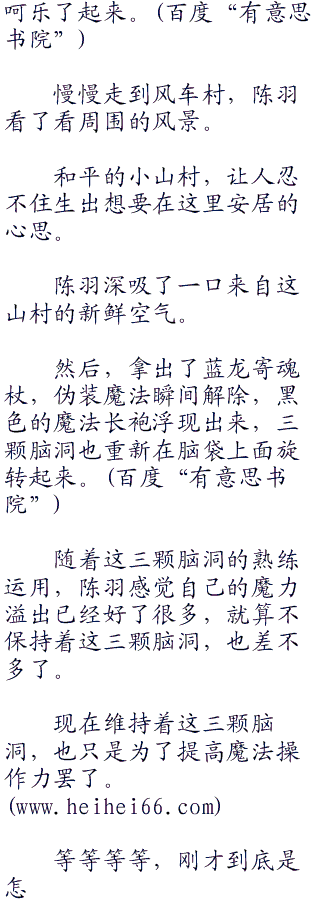 呵乐了起来。(百度“有意思
书院”)
慢慢走到风车村，陈羽
看了看周围的风景。
和平的小山村，让人忍
不住生出想要在这里安居的
心思。
陈羽深吸了一口来自这
山村的新鲜空气。
然后，拿出了蓝龙寄魂
杖，伪装魔法瞬间解除，黑
色的魔法长袍浮现出来，三
颗脑洞也重新在脑袋上面旋
转起来。(百度“有意思书
院”)
随着这三颗脑洞的熟练
运用，陈羽感觉自己的魔力
溢出已经好了很多，就算不
保持着这三颗脑洞，也差不
多了。
现在维持着这三颗脑
洞，也只是为了提高魔法操
作力罢了。
(www.heihei66.com)
等等等等，刚才到底是
怎